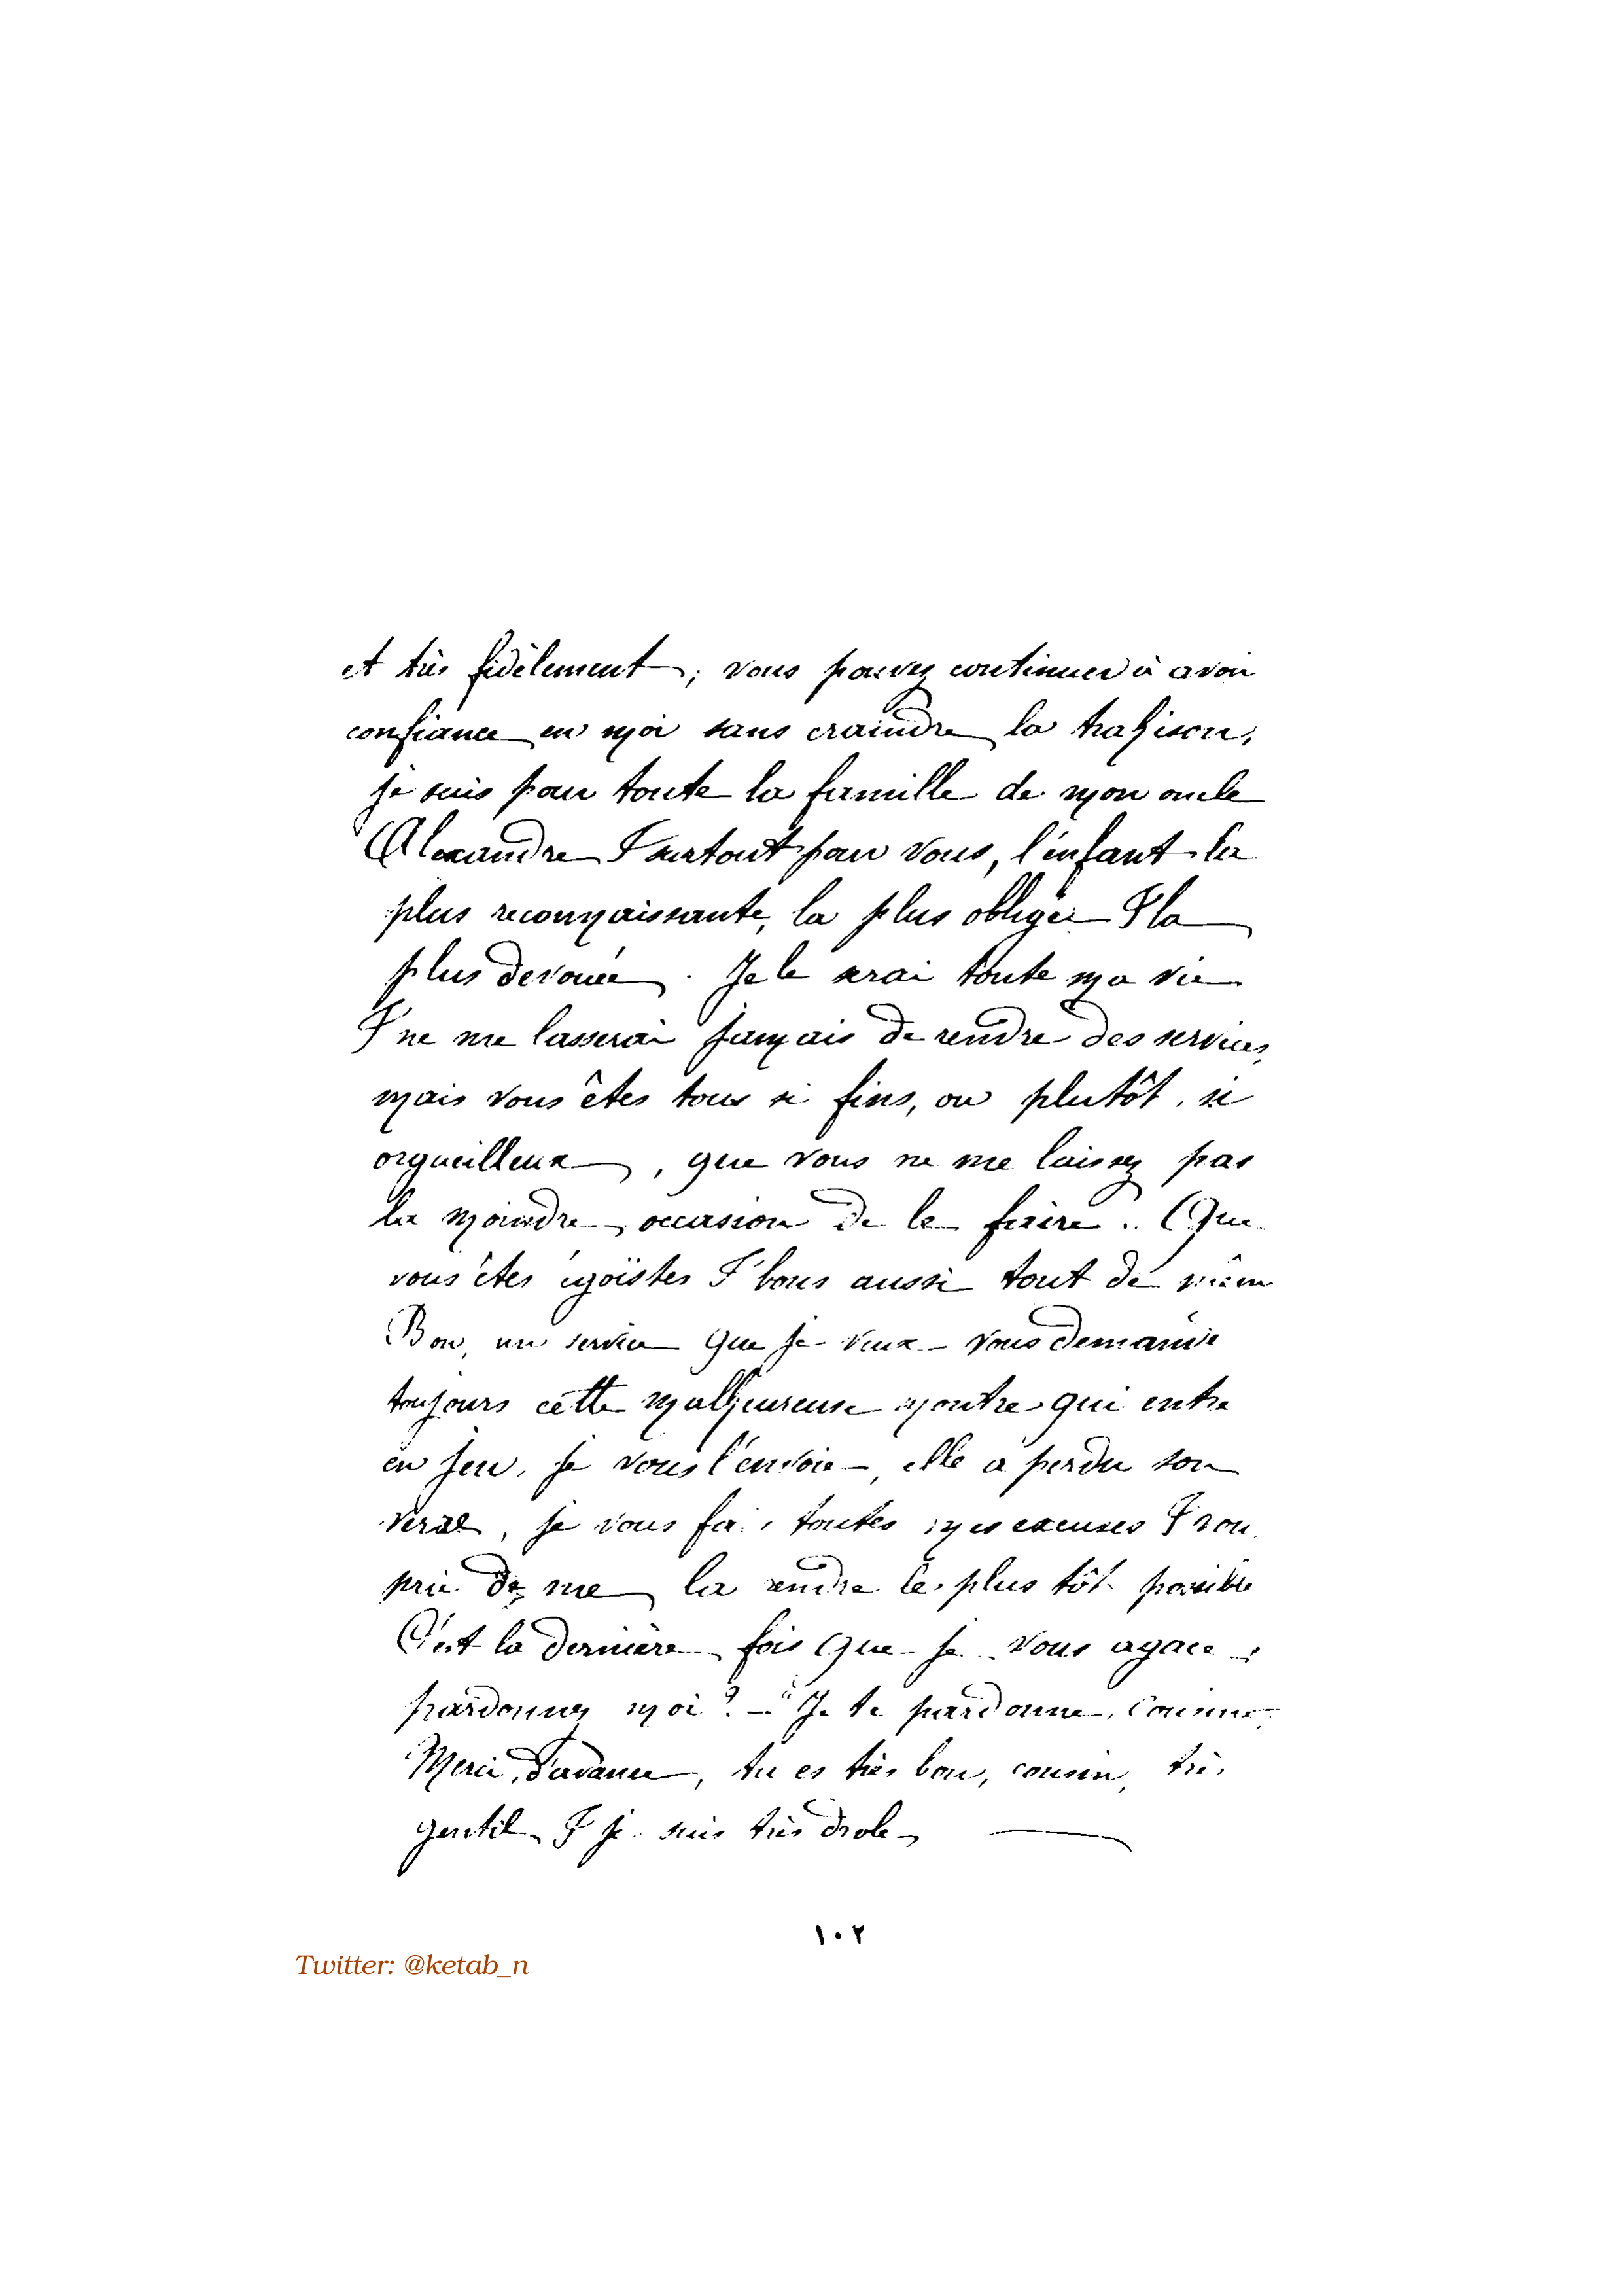 et très fidèlement; vous pouvez continuer à avoir
confiance en moi sans craindre la trahison,
je suis pour toute la famille de mon oncle
Alexandre & surtout pour vous, l'enfant la
plus reconnaissante, la plus obligée & la
plus dévouée. Je le serai toute ma vie
& ne me lasserai jamais de rendre des services,
mais vous êtes tous si fins, ou plutôt, si
orgueilleux, que vous ne me laissez pas
la moindre occasion de le faire.. Que
vous êtes égoïstes & bons aussi tout de même
Bon, un service que je veux vous demande
toujours cette malheureuse montre qui entre
en jeu, je vous l'envoie —, elle a perdu son
verre, je vous fais toutes mes excuses & vous
prie de me la rendre le plus tôt possible
C'est la dernière fois que je vous agace;
pardonnez moi? — "Je te pardonne,
Merci, d'avance, tu es très bon, cousin, très
gentil & je suis très drole —
١٠٢
Twitter: @ketab_n